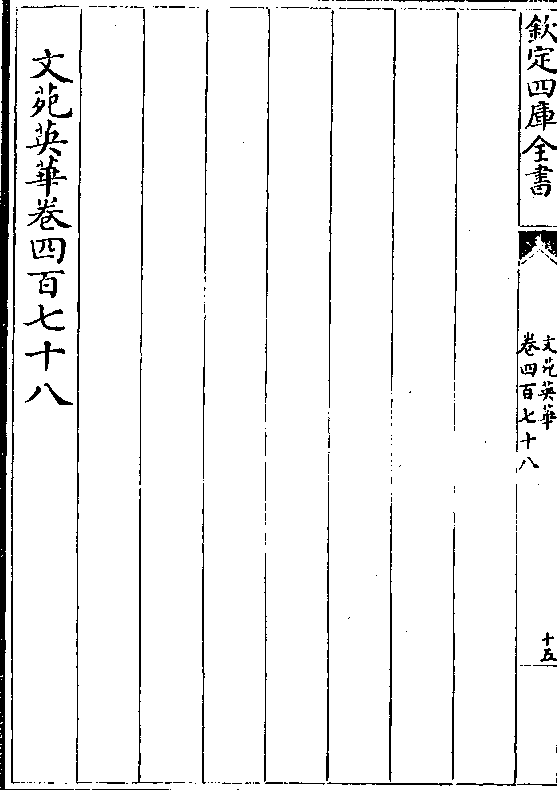 欽定四庫全書
文苑英華
卷四百七十八
十五
文苑英華卷四百七十八